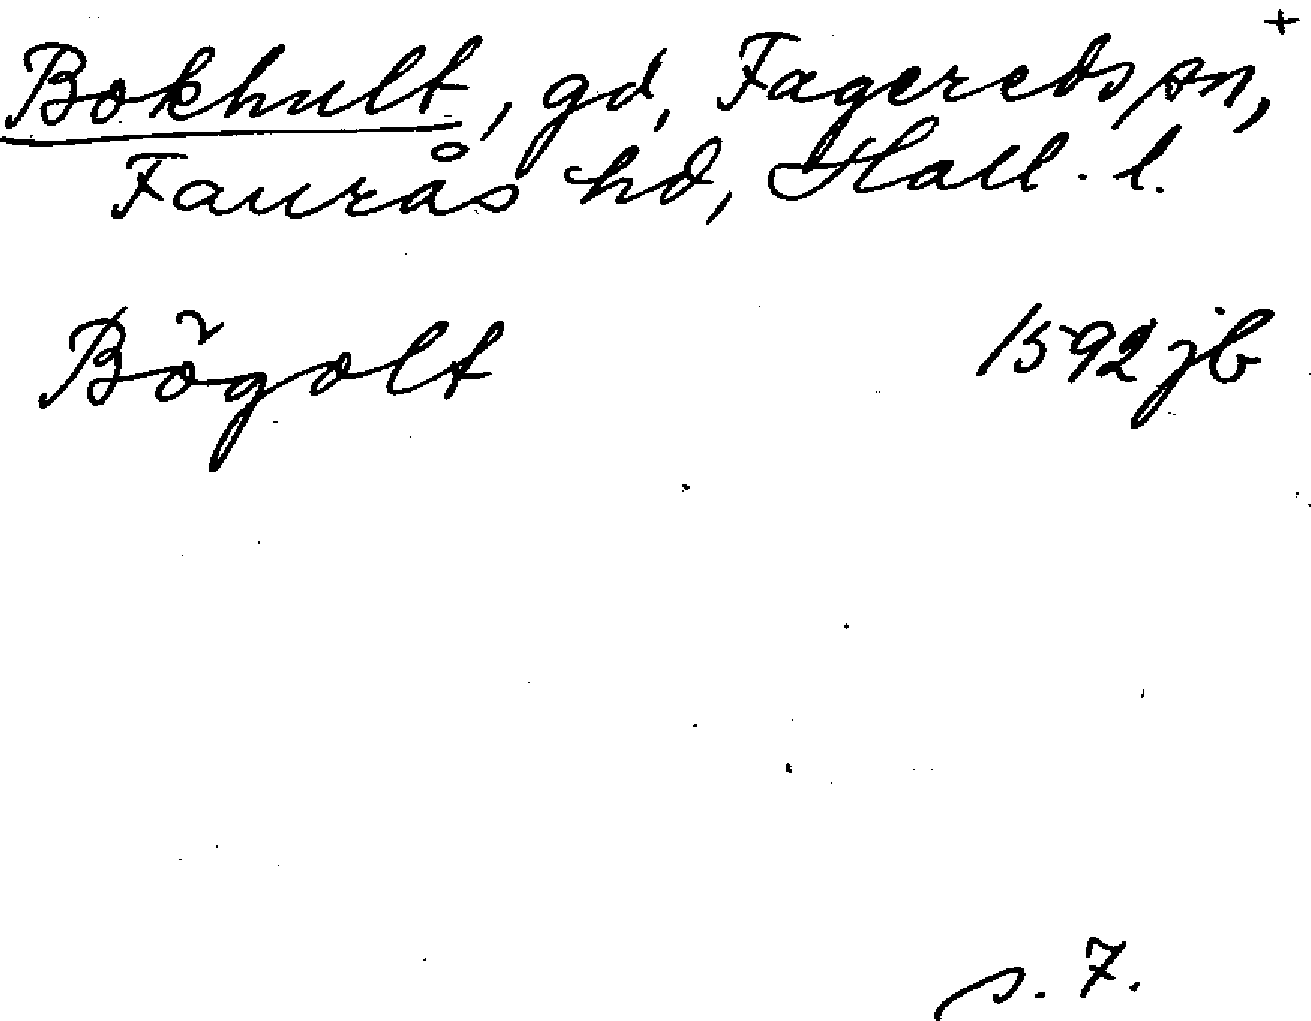 Bokhult, gd, Fagereds sn, +
Faurås hd, Hall. l.
Bögolt 1592 jb
s. 7.